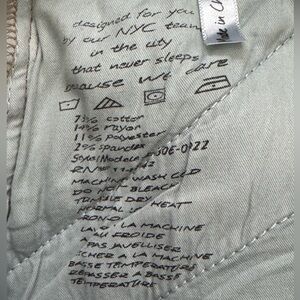 designed for you
by our NYC team
in the city
that never sleeps
because we care
cotton
rayon
11% polyester
2% spandex
Style/Modele
RN#
MACHINE WASH COLD
DO NOT BLEACH
TUMBLE DRY
NORMAL HEAT
LAVER A LA MACHINE
AU FROIDE
PAS JAVELLISER
SECHER A LA MACHINE
BASSE TEMPERATURE
REPASSER A BASSE
TEMPERATURE
Made in Ch